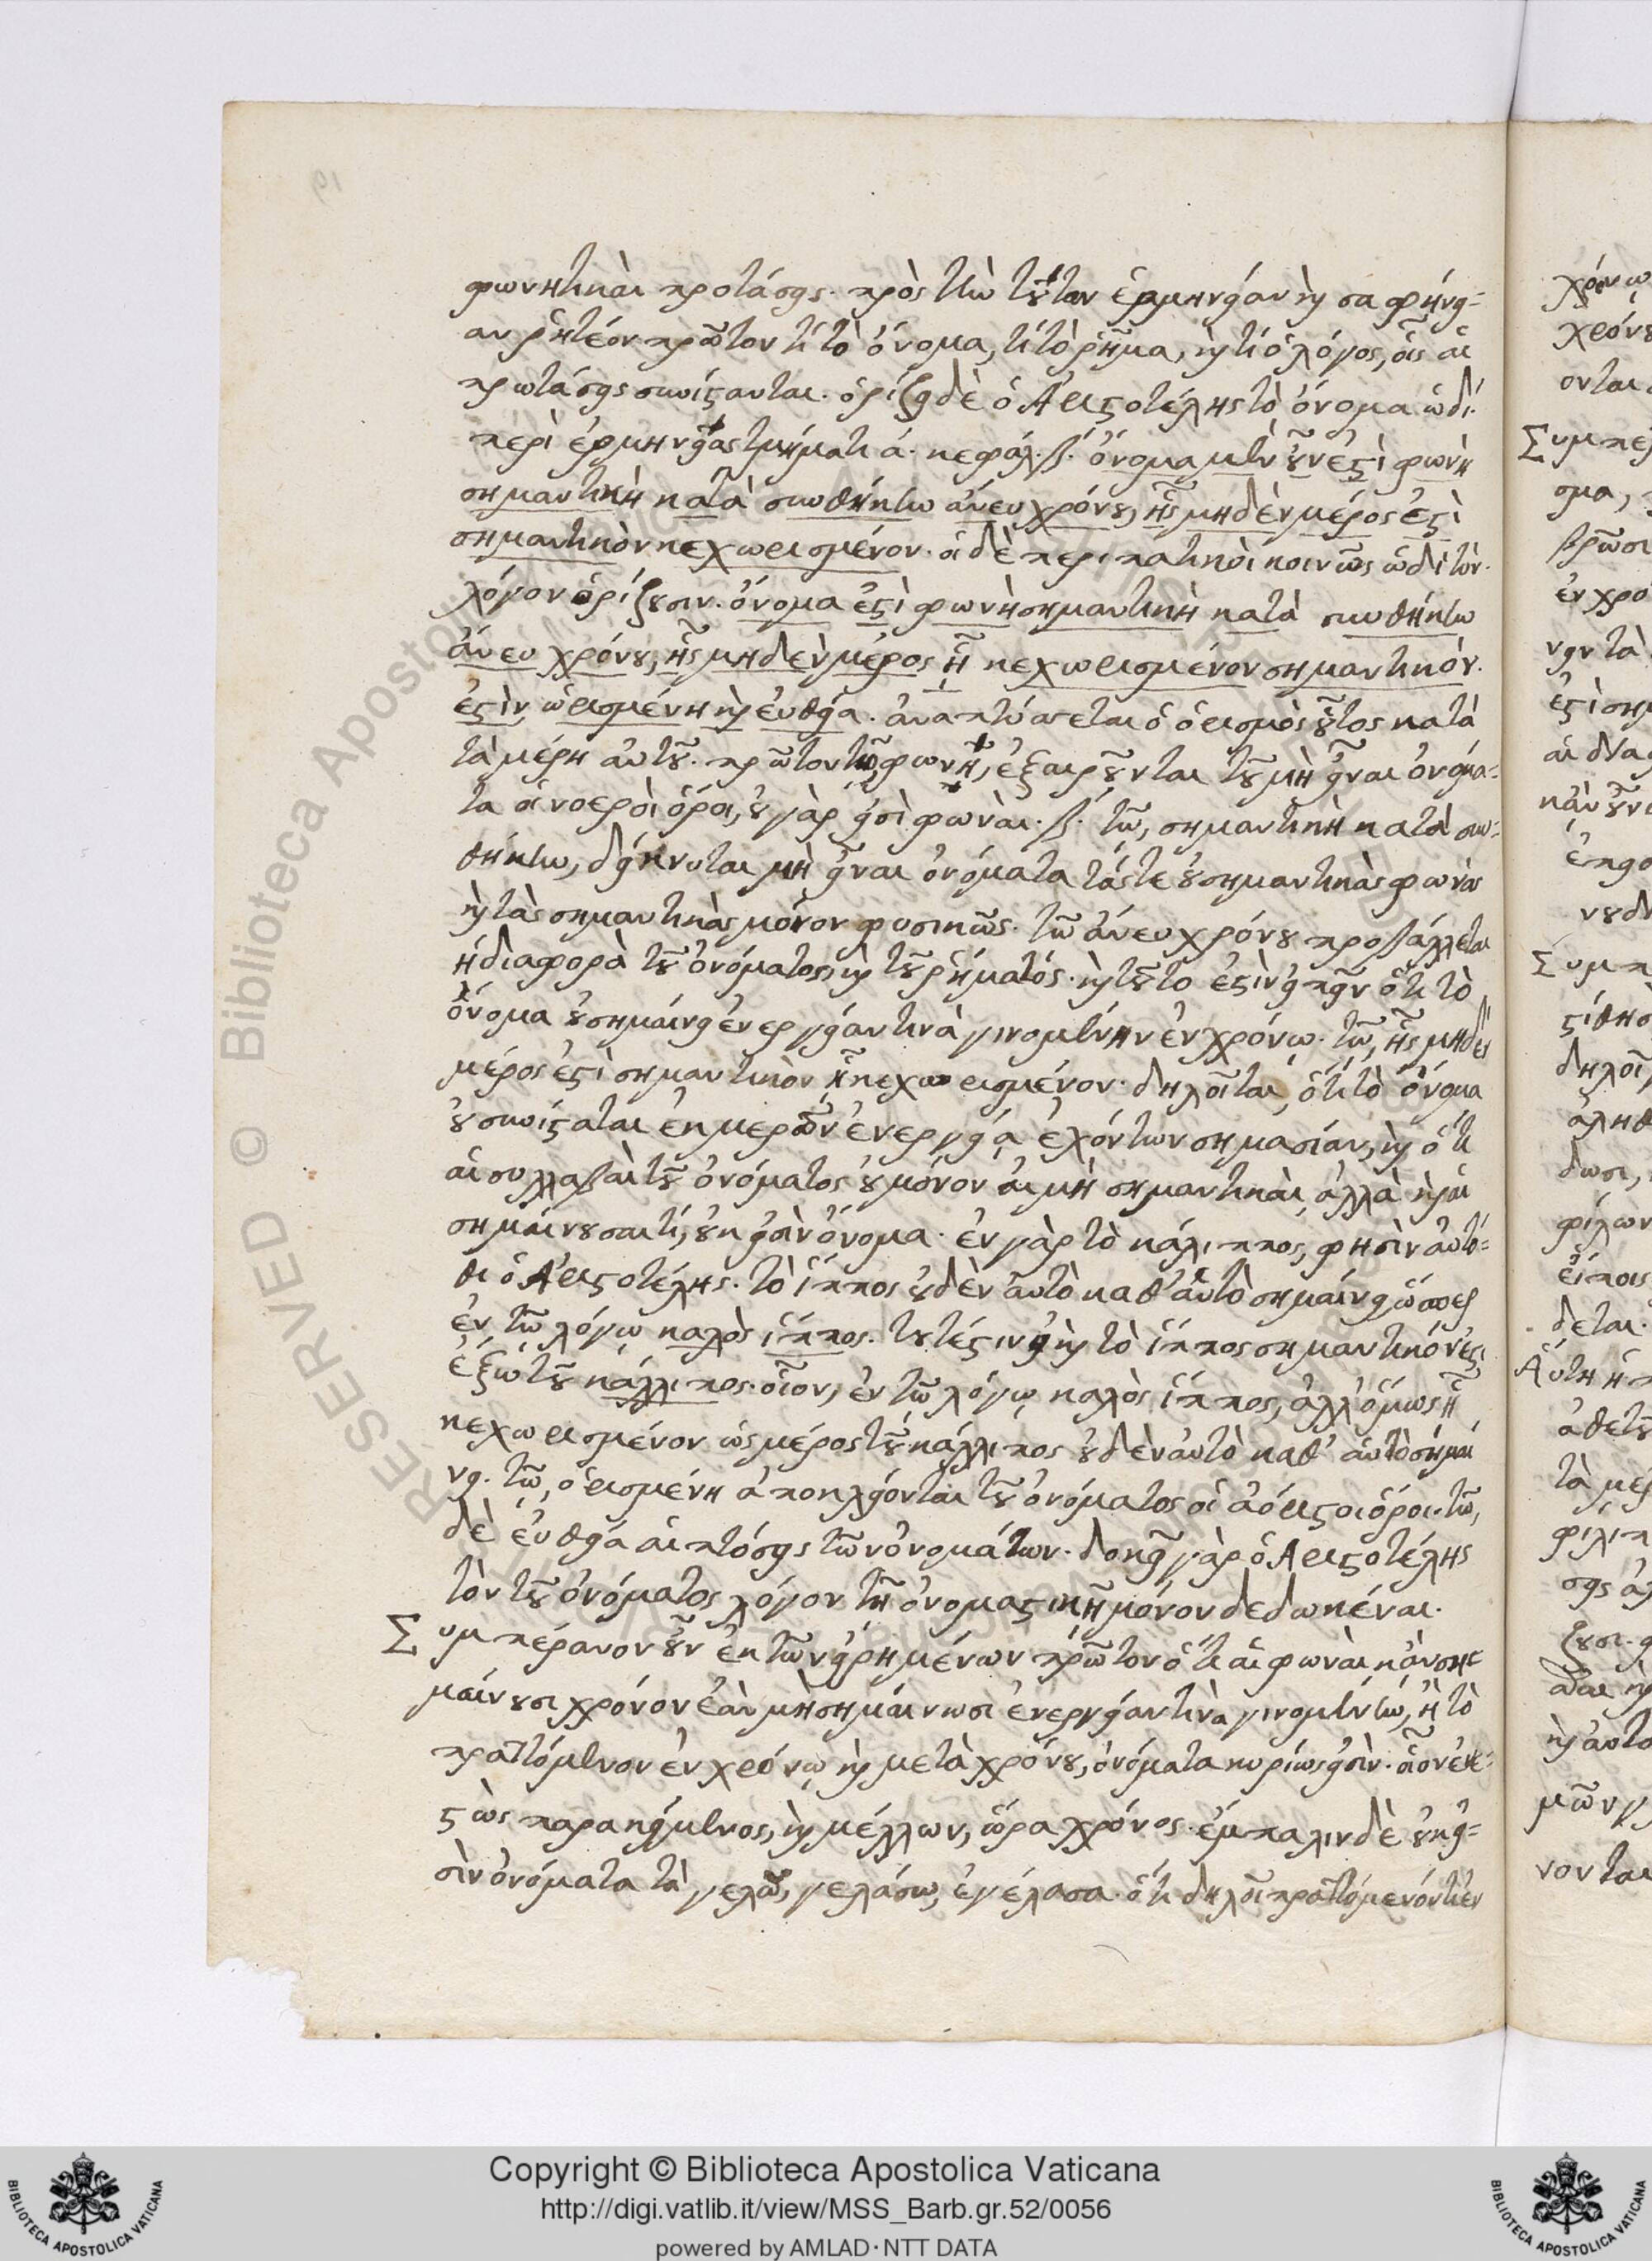 φωνητικαὶ προτάσεις. πρὸς τὴν τούτων ἑρμηνείαν καὶ σαφήνει-
αν ῥητέον πρῶτον τί τὸ ὄνομα, τί τὸ ῥῆμα, καὶ τί ὁ λόγος, οἷς αἱ
πρωτάσεις συνίστανται. ὁρίζει δὲ ὁ Ἀριστοτέλης τὸ ὄνομα ὡδί.
περὶ ἑρμηνείας τμήματι ά. κεφάλ. β. ὄνομα μὲν οὖν ἐστὶ φωνὴ
σημαντικὴ κατὰ συνθήκην ἄνευ χρόνου, ἧς μηδὲν μέρος ἐστὶ
σημαντικὸν κεχωρισμένον. οἱ δὲ περιπατικοὶ κοινῶς ὡδὶ τὸν
λόγον ὁρίζουσιν. ὄνομα ἐστὶ φωνὴ σημαντικὴ κατὰ συνθήκην
ἄνευ χρόνου, ἧς μηδὲν μέρος ᾖ κεχωρισμένον σημαντικόν.
ἐστὶν ὡρισμένη καὶ εὐθεῖα. ἀναπτύσεται ὁ ὁρισμὸς οὗτος κατὰ
τὰ μέρη αὐτοῦ. πρῶτον τῷ, φωνῇ, ἐξαιροῦνται τοῦ μὴ εἶναι ὀνόμα-
τα οἱ νοεροὶ ὅροι, οὐ γὰρ εἰσὶ φωναί. β. τῷ, σημαντικὴ κατὰ συν-
θήκην, δείκνυται μὴ εἶναι ὀνόματα τάς τε οὐ σημαντικὰς φωνάς
καὶ τὰς σημαντικὰς μόνον φυσικῶς. τῷ ἄνευ χρόνου προβάλλεται
ἡ διαφορὰ τοῦ ὀνόματος, καὶ τοῦ ῥήματός. καὶ τοῦτο ἐστὶν εἰπεῖν ὅτι τὸ
ὄνομα οὐ σημαίνει ἐνεργείαν τινὰ γινομένην ἐν χρόνῳ. τῷ, ἧς μηδὲν
μέρος ἐστὶ σημαντικὸν ᾖ κεχωρισμένον. δηλοῖται, ὅτι τὸ ὄνομα
οὐ συνίσταται ἐκ μερῶν ἐνεργείᾳ ἐχόντων σημασίαν, καὶ ὅτι
αἱ συλλαβαὶ τοῦ ὀνόματος οὐ μόνον αἱ μὴ σημαντικαὶ, ἀλλὰ καὶ αἱ
σημαίνουσαι τί, οὐκ εἰσὶν ὄνομα. ἐν γὰρ τὸ κάλιππος, φησὶν αὐτό-
θι ὁ Ἀριστοτέλης. τὸ ἵππος οὐδὲν αὐτὸ καθ' αὑτὸ σημαίνει ὥσπερ
ἐν τῷ λόγῳ καλὸς ἵππος. τουτέστιν εἰ καὶ τὸ ἵππος σημαντικόν ἐστι
ἐξω τοῦ κάλλιπος. οἷον, ἐν τῷ λόγῳ καλὸς ἵππος, ἀλλ' ὅμως ᾖ
κεχωρισμένον ὡς μέρος τοῦ κάλλιπος οὐδὲν αὐτὸ καθ' αὑτὸ σημαί
νει. τῷ, ὁρισμένη ἀποκλείονται τοῦ ὀνόματος οἱ ἀόριστοι ὅροι. τῷ,
δὲ εὐθεῖα αἱ πτόσεις τῶν ὀνομάτων. δοκεῖ γὰρ ὁ Ἀριστοτέλης
τὸν τοῦ ὀνόματος λόγον τῇ ὀνομαστικῇ μόνον δεδωκέναι.
Συμπέρανον οὖν ἐκ τῶν εἰρημένων πρῶτον ὅτι αἱ φωναὶ κἂν ση-
μαίνουσι χρόνον ἐὰν μὴ σημαίνωσι ἐνεργείαν τινὰ γινομένην, ἢ τὸ
πραττόμενον ἐν χρόνῳ καὶ μετὰ χρόνου, ὀνόματα κυρίως εἰσίν. οἷον ἐνε-
στὼς παρακείμενος, καὶ μέλλων, ὥρα χρόνος. ἔμπαλιν δὲ οὐκ εἰ-
σὶν ὀνόματα τὰ γελῶ, γελάσω, ἐγέλασα. ὅτι δηλοῖ πραττόμενόν τι ἐν
Copyright © Biblioteca Apostolica Vaticana
http://digi.vatlib.it/view/MSS_Barb.gr.52/0056
powered by AMLAD·NTT DATA
BIBLIOTECA APOSTOLICA VATICANA
BIBLIOTECA APOSTOLICA VATICANA